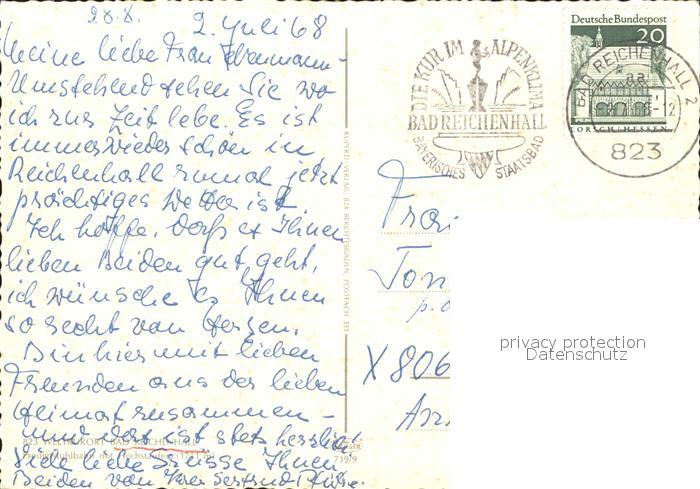 28.8.
2. Juli 68
Meine liebe Frau
Umstehend sehen Sie wo
ich zur Zeit lebe. Es ist
immer wieder schön in
Reichenhall zumal jetzt
prächtiges Wetter ist
Ich hoffe, daß es Ihnen
lieben Beiden gut geht,
ich wünsche es Ihnen
so recht von Herzen.
Bin hier mit lieben
Freunden aus der lieben
Heimat zusammen –
und das ist stets herzlich!
Viele liebe Grüsse Ihnen
Beiden von Ihrer Gertrud
823 WELTKURORT BAD REICHENHALL
Predigtstuhlbahn mit Hochstaufen (1771 m)
RUPERTI-VERLAG, 824 BERCHTESGADEN, POSTFACH 331
719/9
DIE KUR IM ALPENKLIMA
BAD REICHENHALL
BAYERISCHES STAATSBAD
Deutsche Bundespost
20
LORSCH/HESSEN
BAD REICHENHALL 2
aa
-12
823
Frau
Ton
p.a
X 806
privacy protection
Datenschutz